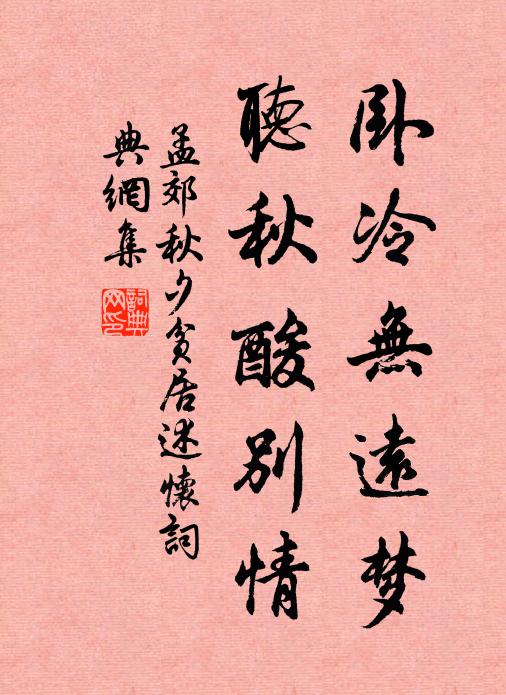 卧冷無遠梦
聽秋酸别情
孟郊秋夕贫居述懷詞
典網集
詞典网印